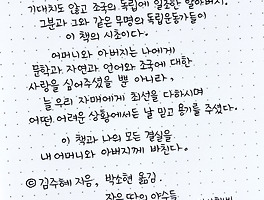 기대치도 않고 조국의 독립에 일조한 할아버지.
그분과 그와 같은 무명의 독립운동가들이
이 책의 시초이다.
어머니와 아버지는 나에게
문학과 자연과 언어와 조국에 대한
사랑을 심어주셨을 뿐 아니라,
늘 우리 자매에게 최선을 다하시며
어떤 어려운 상황에서든 날 믿고 용기를 주셨다.
이 책과 나의 모든 결실을
내 어머니와 아버지께 바친다.
© 김주혜 지음, 박소현 옮김
작은 땅의 야수들